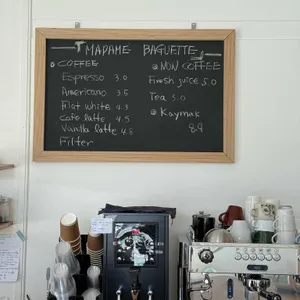 MADAME BAGUETTE
COFFEE
Espresso 3.0
Americano 3.5
Flat white 4.5
Cafe latte 4.5
Vanilla latte 4.8
Filter
NON COFFEE
Fresh juice 5.0
Tea 3.0
Kaymak
8.9